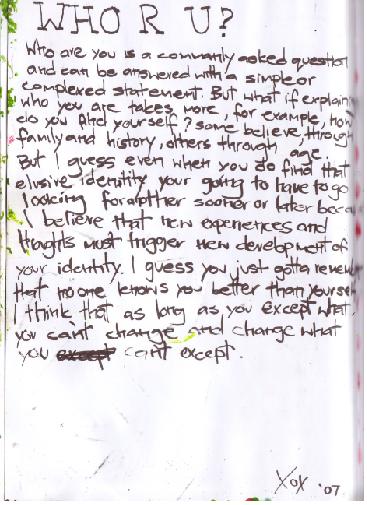 WHO R U?
Who are you is a commonly asked question
and can be answered with a simple or
complexed statement. But what if explain
who you are takes more, for example, how
do you find yourself? some believe, through
family and history, others through age.
But I guess even when you do find that
elusive identity your going to have to go
looking for another sooner or later becau
I believe that new experiences and
thoughts must trigger new development of
your identity. I guess you just gotta remem
that no one knows you better than yourself
I think that as long as you except what
you cant change and change what
you cant except.
XoX '07